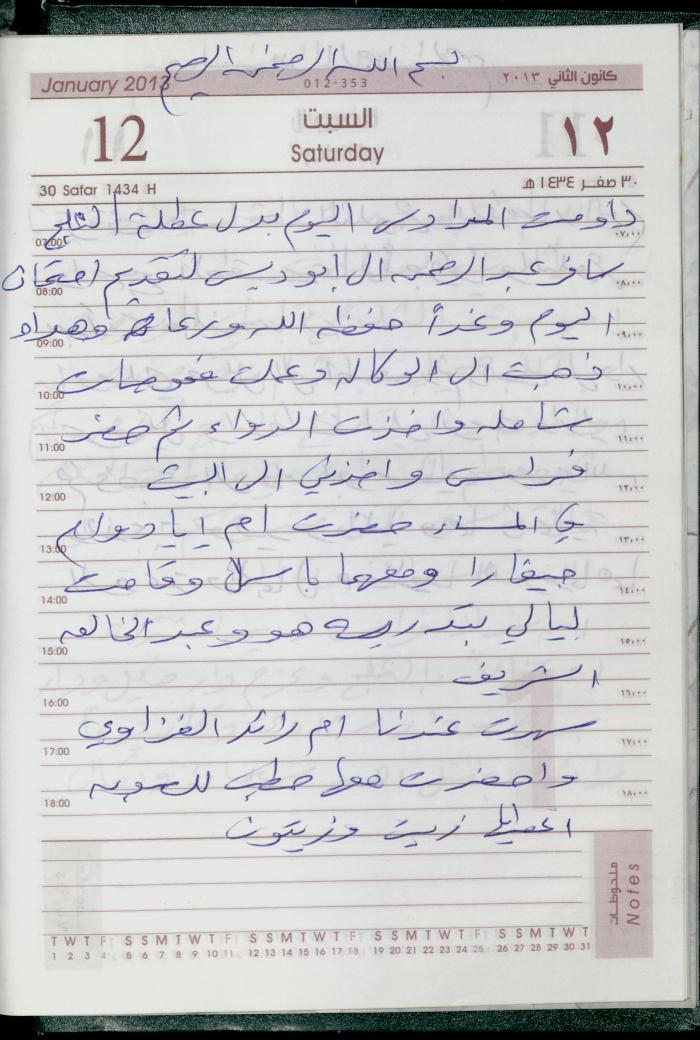 بسم الله الرحمن الرحيم
January 2013
012-353
كانون الثاني ٢٠١٣
12
السبت
Saturday
١٢
30 Safar 1434 H
٣٠ صفر ١٤٣٤ هـ
داومت المدارس اليوم بدل عطلة الثلج
07:00 ٠٧:٠٠
سافر عبد الرحمن الى ابوديس لتقديم امتحان
08:00 ٠٨:٠٠
اليوم وغداً حفظه الله ورعاه وهداه
09:00 ٠٩:٠٠
ذهبت الى الوكاله وعملت فحوصات
10:00 ١٠:٠٠
شامله واخذت الدواء ثم حضر
11:00 ١١:٠٠
فراس واخذني الى البيت
12:00 ١٢:٠٠
في المساء حضرت ام إياد
13:00 ١٣:٠٠
جيفارا ومعهما باسل وقامت
14:00 ١٤:٠٠
ليالي بتدريسه هو وعبد الخالق
15:00 ١٥:٠٠
الشريف
16:00 ١٦:٠٠
سهرت عندنا ام رائد العزاوي
17:00 ١٧:٠٠
واحضرت معها حطب للصوبه
18:00 ١٨:٠٠
زيت وزيتون
ملاحظات
Notes
T W T F S S M T W T F S S M T W T F S S M T W T F S S M T W T
1 2 3 4 5 6 7 8 9 10 11 12 13 14 15 16 17 18 19 20 21 22 23 24 25 26 27 28 29 30 31